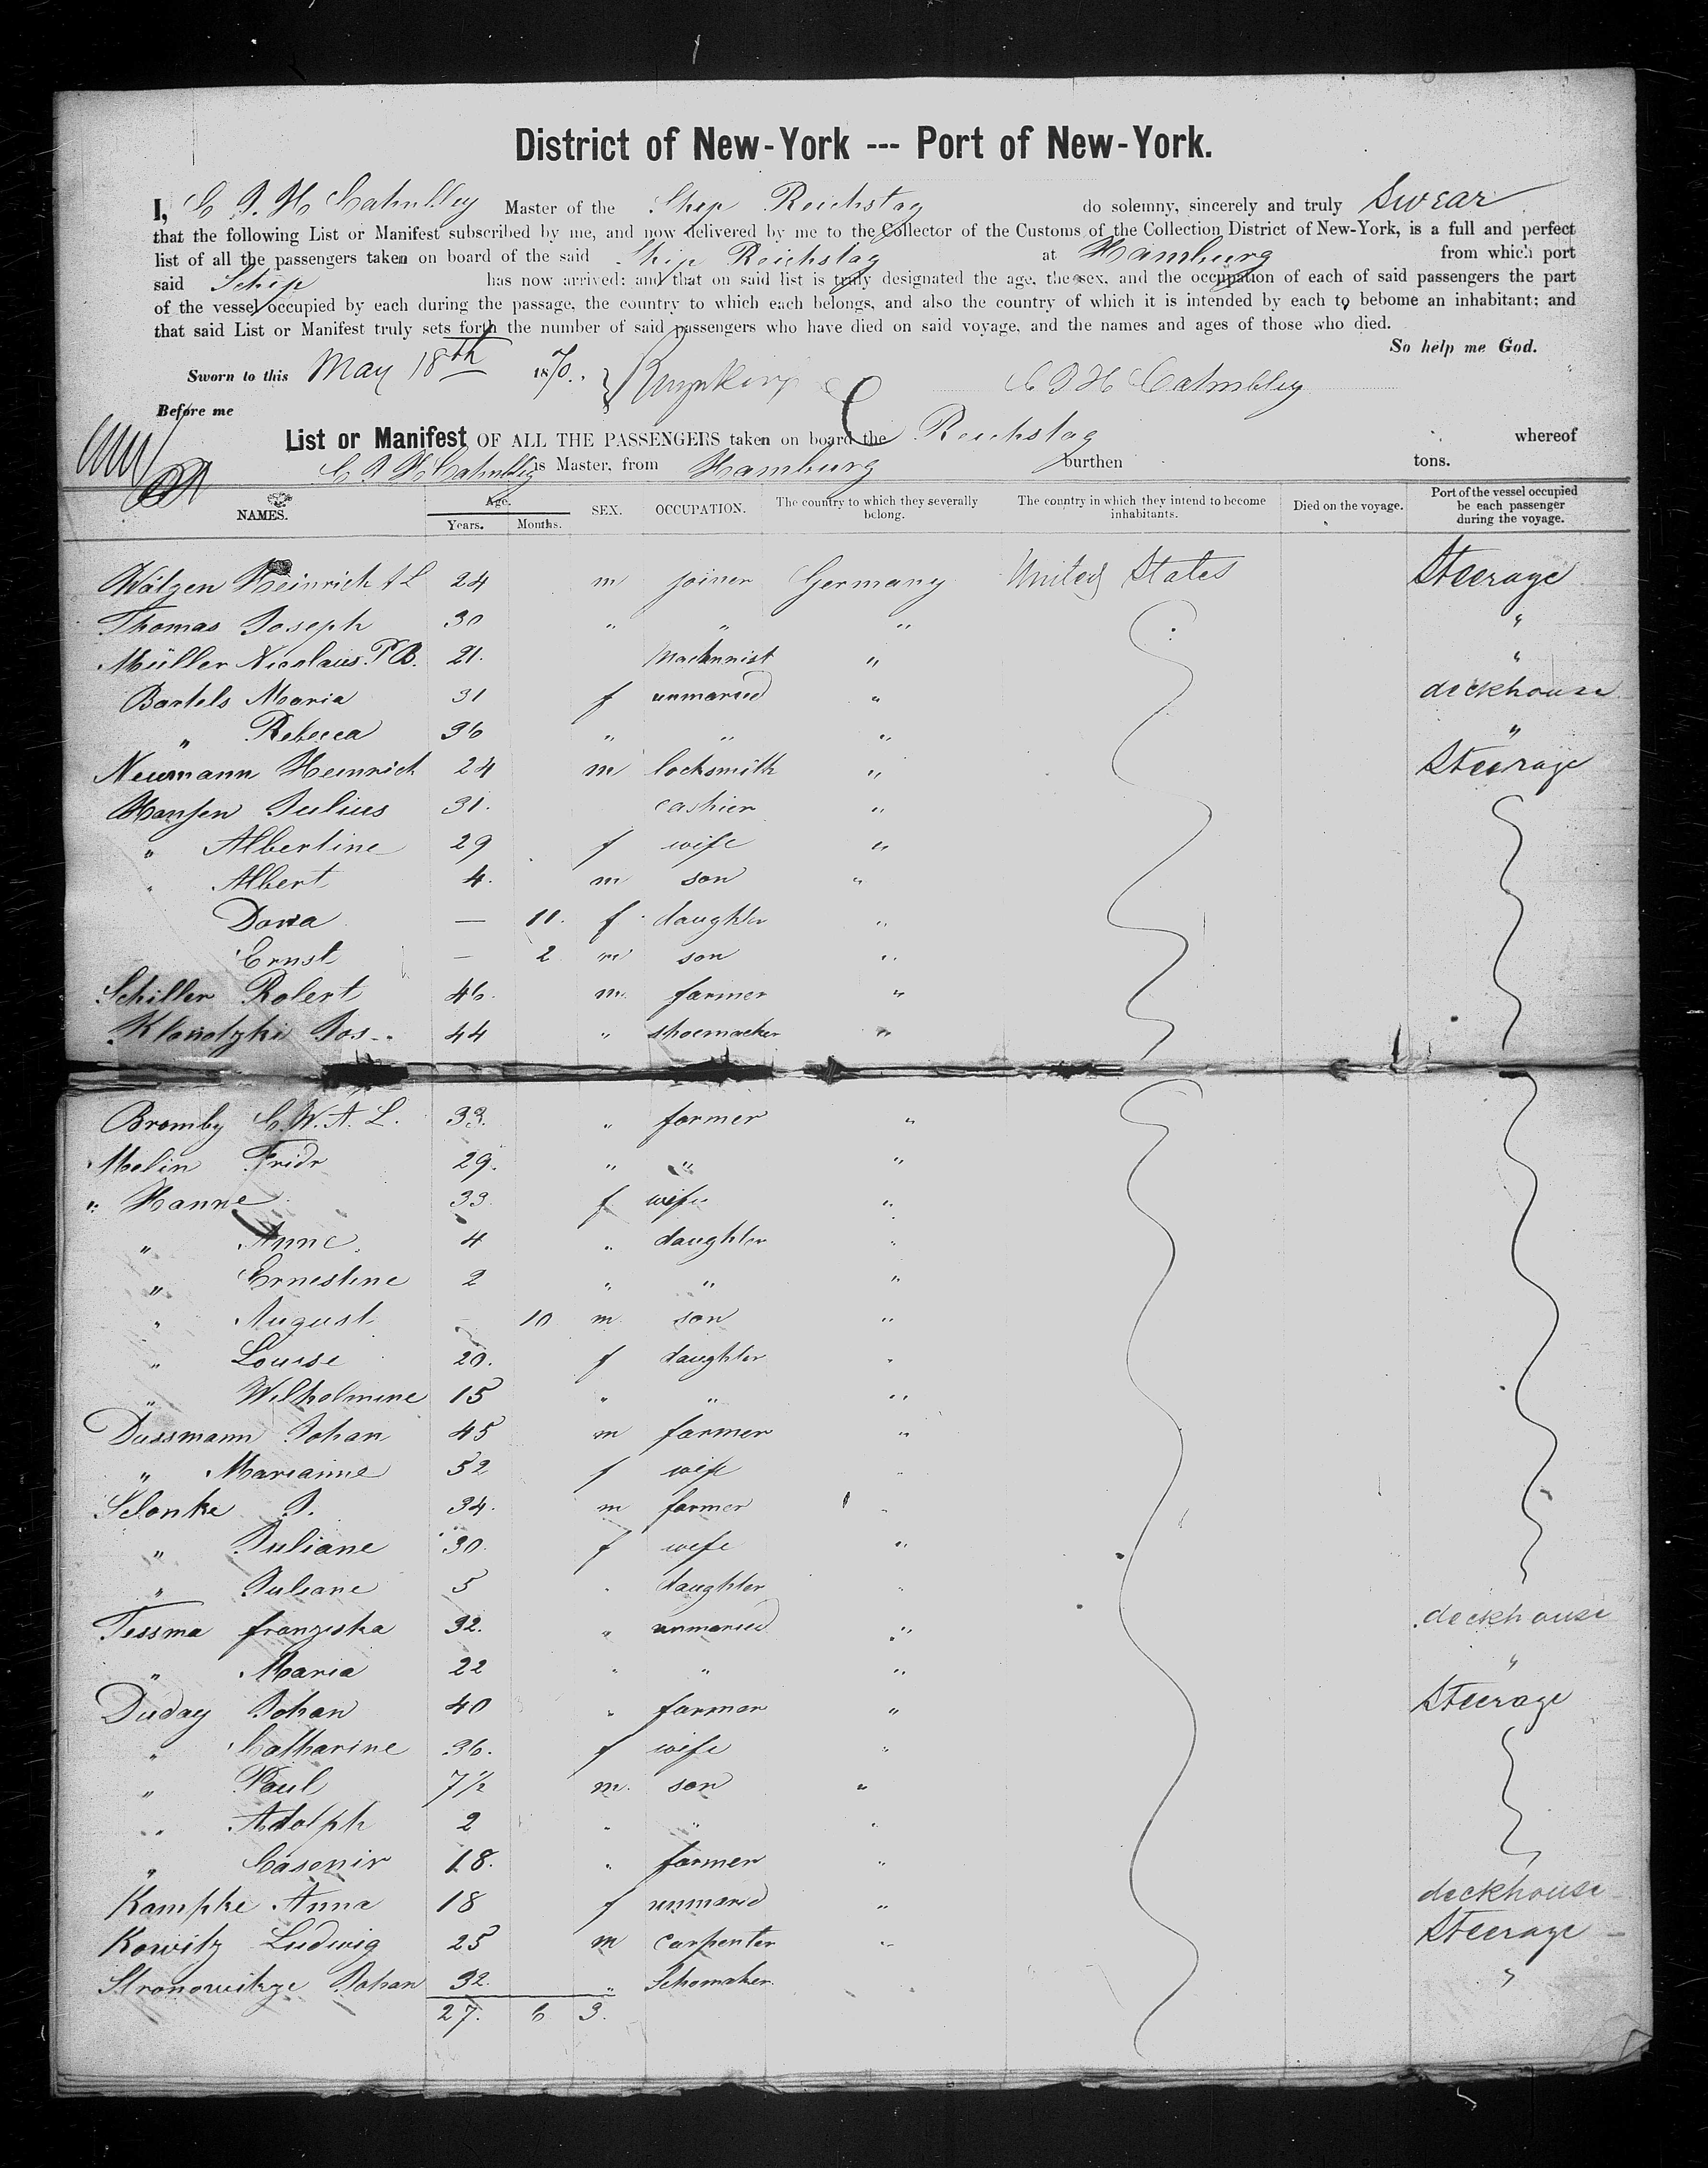 District of New-York --- Port of New-York.
I, C. J. H. Cahnbley Master of the Ship Reichstag do solemny, sincerely and truly Swear
that the following List or Manifest subscribed by me, and now delivered by me to the Collector of the Customs of the Collection District of New-York, is a full and perfect
list of all the passengers taken on board of the said Ship Reichstag at Hamburg from which port
said Schip has now arrived: and that on said list is truly designated the age, the sex, and the occupation of each of said passengers the part
of the vessel occupied by each during the passage, the country to which each belongs, and also the country of which it is intended by each to bebome an inhabitant; and
that said List or Manifest truly sets forth the number of said passengers who have died on said voyage, and the names and ages of those who died.
So help me God.
Sworn to this May 18th 1870. C J H Cahnbley
Before me
List or Manifest OF ALL THE PASSENGERS taken on board the Reichstag whereof
C J H Cahnbley is Master, from Hamburg burthen tons.
NAMES. Age. Years. Months. SEX. OCCUPATION. The country to which they severally belong. The country in which they intend to become inhabitants. Died on the voyage. Port of the vessel occupied be each passenger during the voyage.
Wätgen Heinrich A L 24 m joiner Germany United States Steerage
Thomas Joseph 30 " " " "
Müller Nicolaus P B. 21. Machinist " "
Bartels Maria 31 f unmaried " deckhouse
" Rebecca 36 " " " "
Neumann Heinrich 24 m locksmith " Steerage
Hansen Julius 31. cashier "
" Albertine 29 f wife "
" Albert 4. m son "
Dora — 11. f daughter "
Ernst — 2 m son "
Schiller Robert 46. m. farmer "
Klonotzki Jos. 44 " shoemacker "
Bromby C. W. A. L. 33. " farmer "
Melin Fridr 29. " " "
" Hanne 33. f wife "
" Anne 4 " daughter "
" Ernestine 2 " " "
" August - 10 m son "
" Louise 20. f daughter "
" Wilhelmine 15 " " "
Dussmann Johan 45 m farmer "
" Marianne 52 f wife "
Selonke J. 34. m farmer "
" Juliane 30. f wife "
" Juliane 5 " daughter "
Tessma franziska 32. " unmaried " deckhouse
" Maria 22 " " " "
Duday Johan 40 " farmer " Steerage
" Catharine 36. f wife "
" Paul 7½ m. son "
" Adolph 2 " " "
" Casemir 18. " farmer "
Kampke Anna 18 f unmarid " deckhouse
Kowitz Ludwig 25 m carpenter " Steerage
Stronowitzge Johan 32. " Schomaker "
27. 6 3.